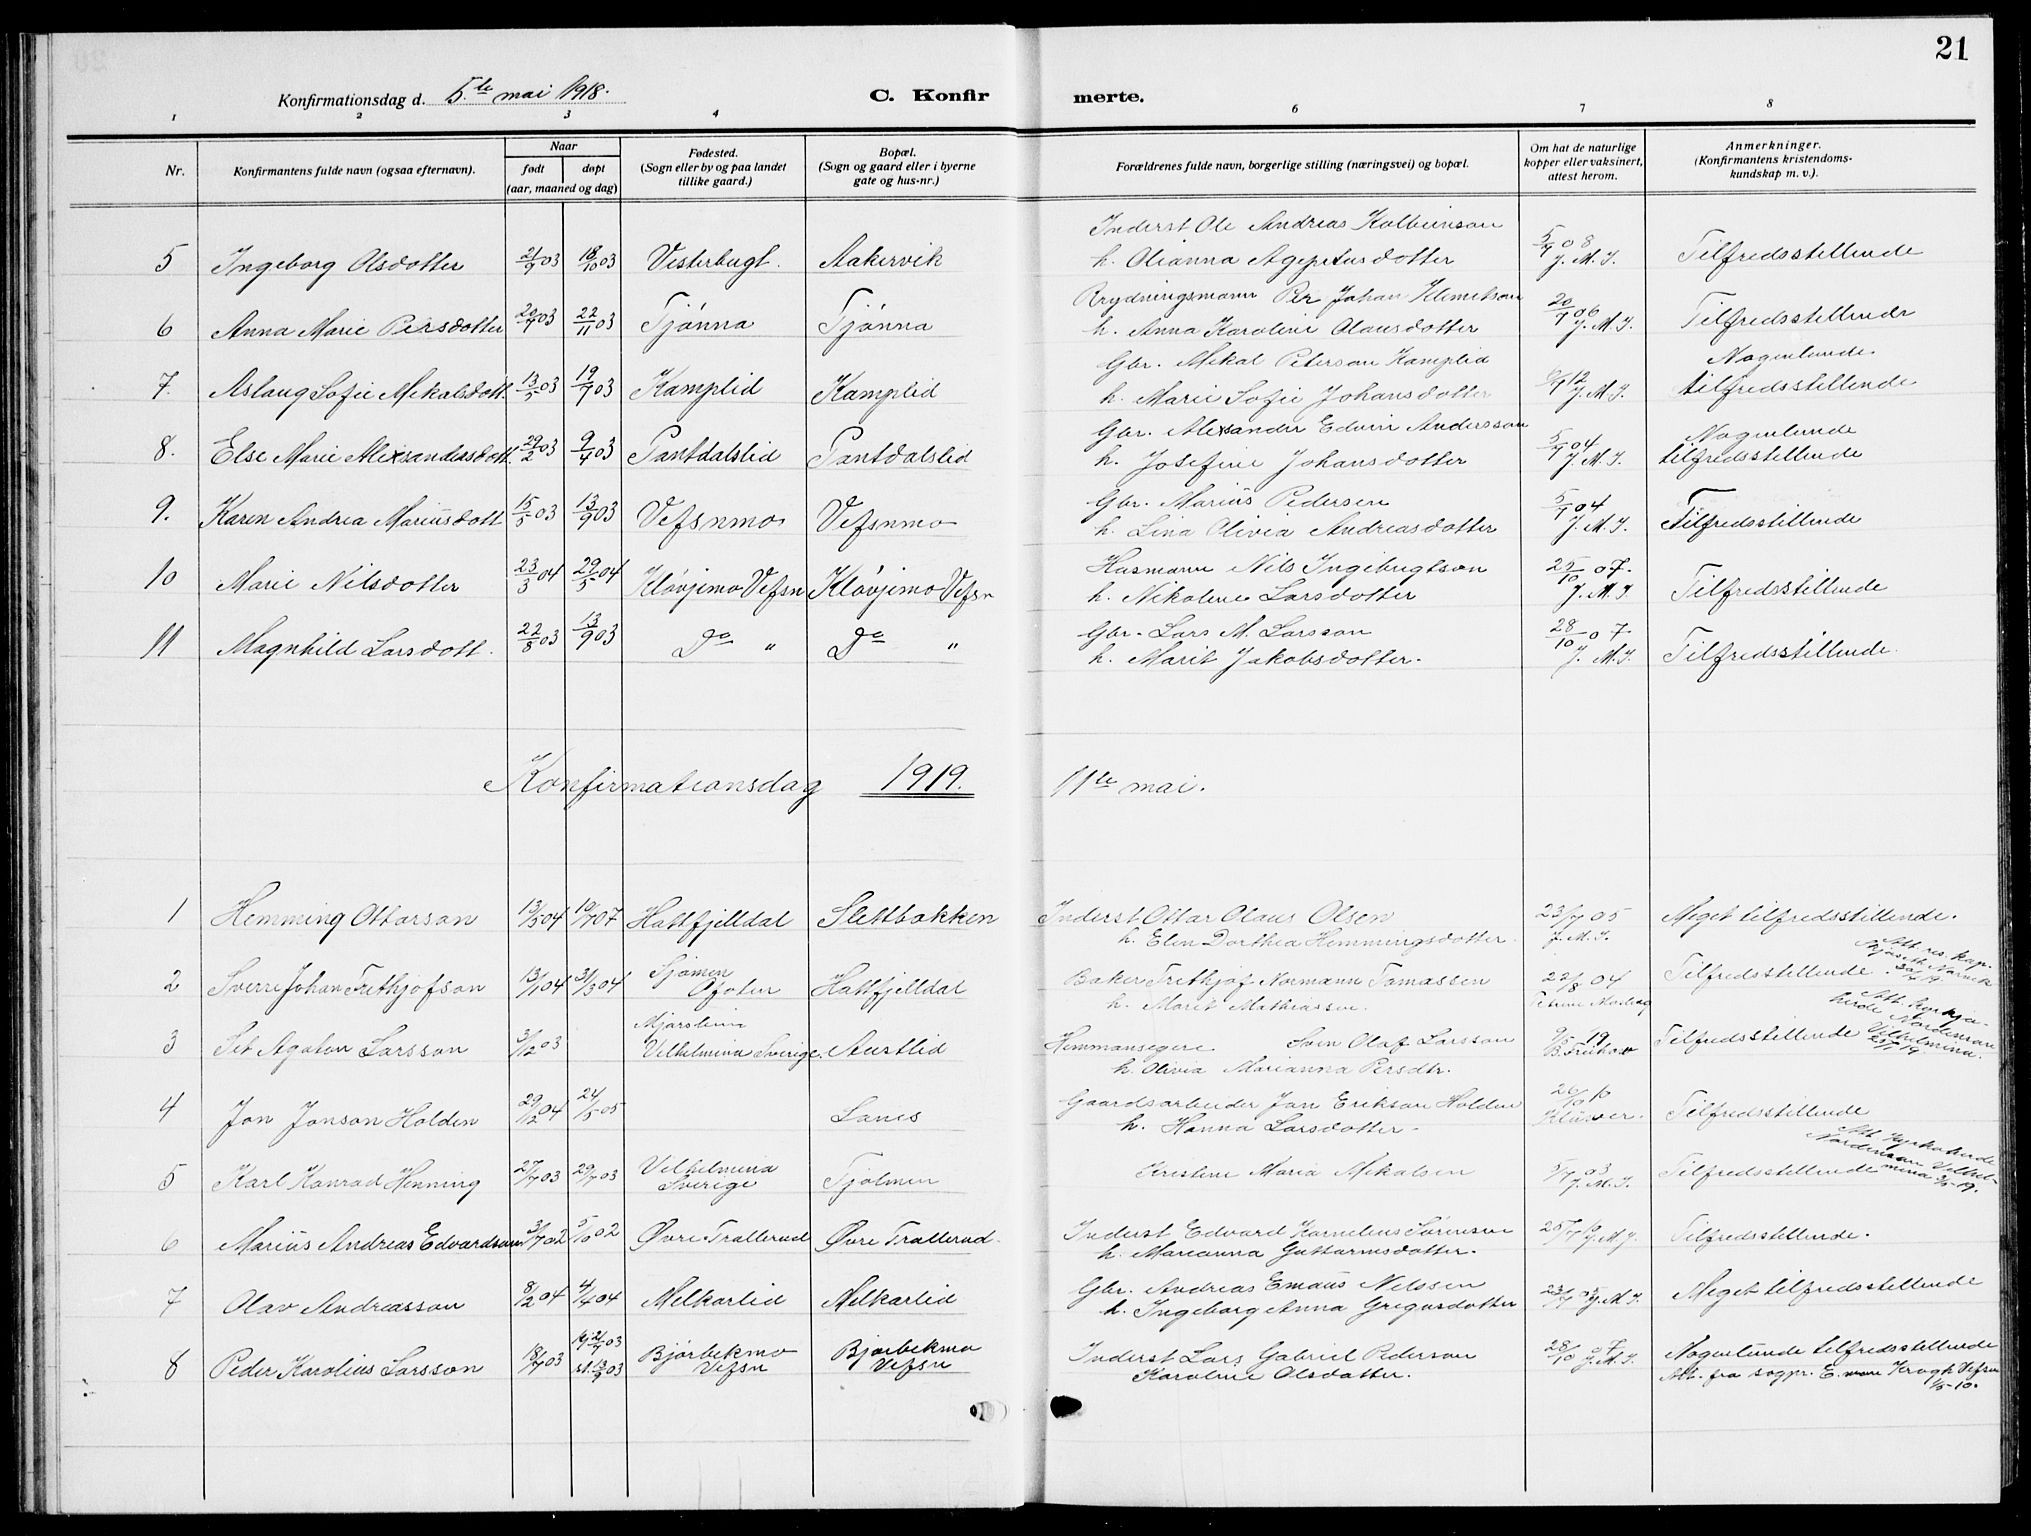 21
Konfirmationsdag d. 5.te mai 1918.
C. Konfirmerte.
1 2 3 4 6 7 8
Nr.
Konfirmantens fulde navn (ogsaa efternavn).
Naar
født døpt
(aar, maaned og dag)
Fødested.
(Sogn eller by og paa landet
tillike gaard.)
Bopæl.
(Sogn og gaard eller i byerne
gate og hus-nr.)
Forældrenes fulde navn, borgerlige stilling (næringsvei) og bopæl.
Om hat de naturlige
kopper eller vaksinert,
attest herom.
Anmerkninger.
(Konfirmantens kristendoms-
kundskap m. v.).
Inderst Ole Andreas Kolbeinson
5 Ingeborg Olsdotter 21/9 03 18/10 03 Vesterbugt. Aakervik h. Olianna Agepetusdotter 5/9 08 J. M. J. Tilfredsstillende
Rrydningsmann Per Johan Klemetson
6 Anna Marie Persdotter 20/7 03 22/11 03 Tjønna Tjønna h. Anna Karoline Olausdotter 20/7 06 J. M. J. Tilfredsstillende
Gbr. Mikal Peterson Kamplid Nogenlunde
7. Aslaug Sofie Mikalsdott. 13/5 03 19/7 03 Kamplid Kamplid h. Marie Sofie Johansdotter 12 J. M. J. tilfredsstillende
Gbr. Alexsander Edvin Andersson Nogenlunde
8. Else Marie Alexsandersdott. 29/2 03 9/4 03 Pantdalslid Pantdalslid h. Josefine Johansdotter 5/7 04 J. M. J. tilfredsstillende
Gbr. Marius Pedersen
9. Karen Andrea Mariusdott 15/5 03 13/9 03 Vefsnmo Vefsnmo h. Lina Olivea Andreasdotter 5/7 04 J. M. J. Tilfredsstillende
Husmann Nils Ingebrigtson
10 Marie Nilsdotter 23/3 04 29/5 04 Kløvjimo Vefsn Kløvjimo Vefsn h. Nikoline Larsdotter 28/10 07. J. M. J. Tilfredsstillende
Gbr. Lars M. Larsson
11 Magnhild Larsdott. 22/8 03 13/9 03 Do " Do " h. Marit Jakobsdotter. 28/10 07 J. M. J. Tilfredsstillende.
Konfirmationsdag 1919. 11te mai.
1 Hemming Ottarson 13/5 04 19/7 07 Hatfjelldal Slettbakken Inderst Ottar Olaus Olsen 23/7 05 Meget tilfredsstillende.
h. Elen Dorthea Hemmingsdotter. J. M. J.
2 Sverre Johan Frithjofson 13/1 04 31/3 04 Sjømen Ofoten Hatfjelldal Baker Frithjof Normann Tomassen 22/8 04 Tilfredsstillende.
h. Marit Mathiassen
3 Set Agaton Larsson 3/12 03 Vilhelmina Sverige. Austlid Hemmansegere Sven Olaf Larsson 9/5 19 Tilfredsstillende
h. Olivia Marianna Persdtr. Vilhelmina
4 Jon Jonson Holden 29/12 04 24/5 05 Lanes Gaardsarbeider Jon Erikson Holden 26/10 10 Tilfredsstillende
h. Hanna Larsdotter. Klüver.
5 Karl Konrad Henning 27/7 03 29/7 03 Vilhelmina Sverige Tjolmen Kristine Maria Mikalsen 5/7 03 J. M. J. Tilfredsstillende
6 Marius Andreas Edvardson 3/7 02 5/10 02 Øvre-Trallerud Øvre Trallerud. Inderst Edvard Kornelius Sørensen 25/7 10 J. M. J. Tilfredsstillende.
h. Marianna Guttormsdotter.
7 Olav Andreasson 8/12 04 4/4 04 Melkarlid Melkarlid Gbr. Andreas Emaus Nilssen 23/7 05 J. M. J. Meget tilfredsstillende
h. Ingeborg Anna Gregusdotter
8 Peder Karolius Larsson 18/7 03 hj. 21/7 03 st. 13/9 03 Bjørbekmo Vefsn Bjørbekmo Vefsn Inderst Lars Gabriel Pederson 28/10 07 J. M. J. Nogenlunde tilfredsstillende
Karoline Olsdatter. Att. fra sogpr. E. Krogh Vefsn
1/5-10.